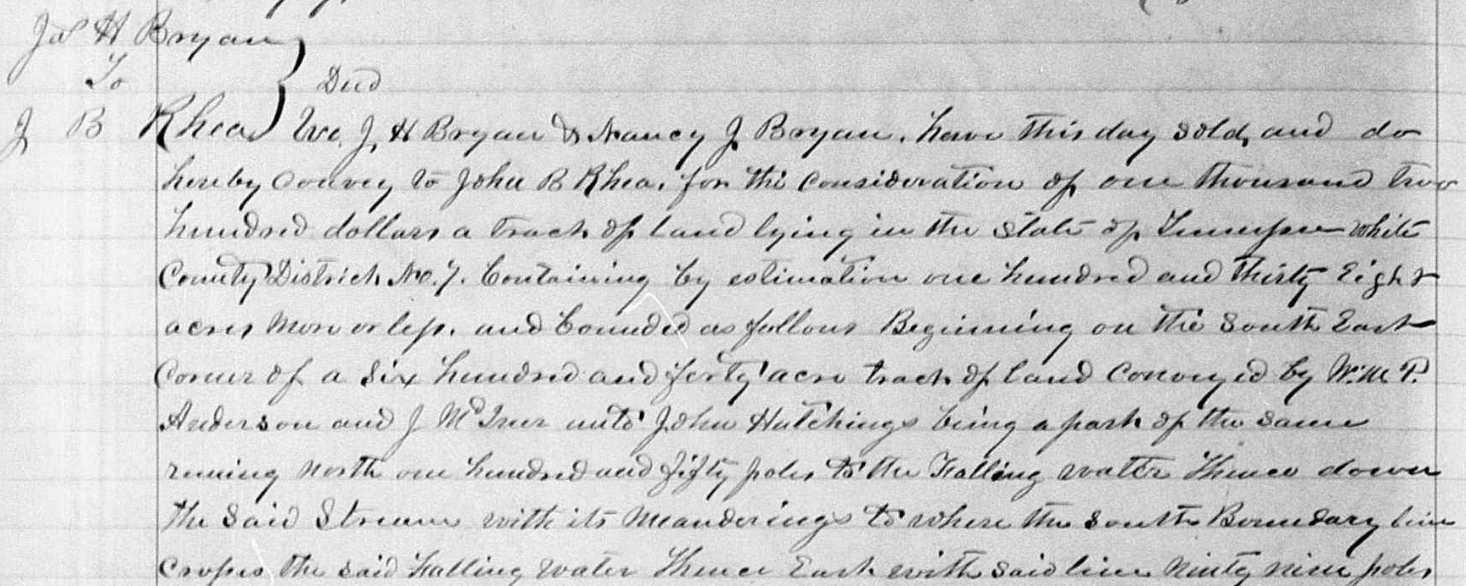 Jas H Bryan
To } Deed
J B Rhea We, J, H Bryan & Nancy J Bryan, have this day sold, and do
hereby convey to John B Rhea, for the consideration of one thousand two
hundred dollars a track of land lying in the State of Tennessee white
County District No. 7. Containing by estimation one hundred and thirty Eight
acres more or less. and bounded as follows Beginning on the South East
Corner of a Six hundred and forty acre track of land Conveyed by W.m P.
Anderson and J unto John Hutchings being a part of the same
runing North one hundred and fifty poles to the Falling water Thence down
the Said Stream with its Meanderings to where the South Boundary line
Crosses the said Falling Water Thence East with said line Ninety nine poles